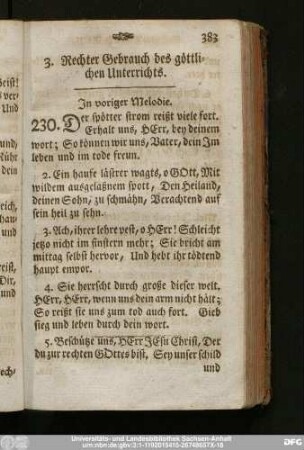 383
3. Rechter Gebrauch des göttli-
chen Unterrichts.
In voriger Melodie.
230. Der spötter strom reißt viele fort.
Erhalt uns, HErr, bey deinem
wort; So können wir uns, Vater, dein Im
leben und im tode freun.
2. Ein haufe lästrer wagts, o GOtt, Mit
wildem ausgelaßnem spott, Den Heiland,
deinen Sohn, zu schmähn, Verachtend auf
sein heil zu sehn.
3. Ach, ihrer lehre pest, o HErr! Schleicht
jetzo nicht im finstern mehr; Sie bricht am
mittag selbst hervor, Und hebt ihr tödtend
haupt empor.
4. Sie herrscht durch große dieser welt.
HErr, HErr, wenn uns dein arm nicht hält;
So reißt sie uns zum tod auch fort. Gieb
sieg und leben durch dein wort.
5. Beschütze uns, HErr JEsu Christ, Der
du zur rechten GOttes bist, Sey unser schild
und
Universitäts- und Landesbibliothek Sachsen-Anhalt
urn:nbn:de:gbv:3:1-1192015415-26749667X-16
DFG